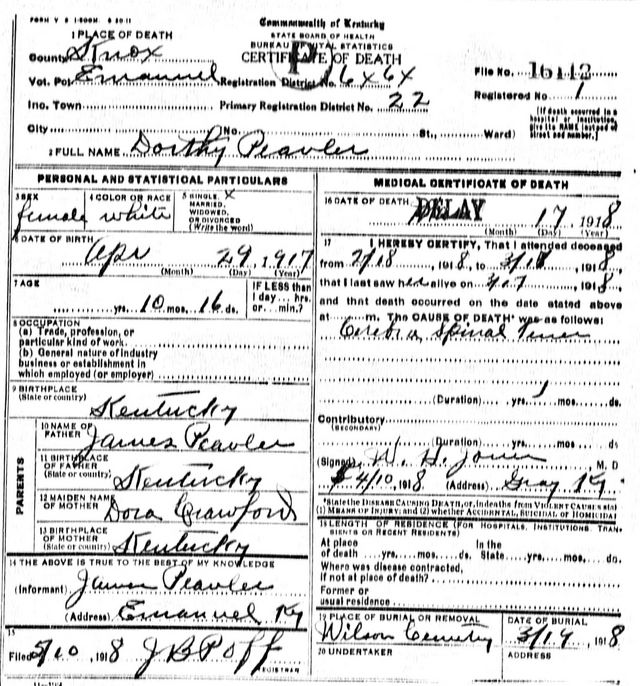 FORM V S 1-500M. 6 20-11
Commonwealth of Kentucky
STATE BOARD OF HEALTH
BUREAU OF VITAL STATISTICS
CERTIFICATE OF DEATH
P
1 PLACE OF DEATH
County Knox
Vot. Pct. Emanuel Registration District No. 16x6x
File No. 16112
Registered No. 1
Ino. Town Primary Registration District No. 22
[If death occurred in a hospital or institution, give its NAME instead of street and number.]
City (No. St., Ward)
2 FULL NAME Dorthy Peavler
PERSONAL AND STATISTICAL PARTICULARS
3 SEX female
4 COLOR OR RACE white
5 SINGLE, X
MARRIED,
WIDOWED,
OR DIVORCED
(Write the word)
6 DATE OF BIRTH
Apr 29, 1917
(Month) (Day) (Year)
7 AGE
yrs. 10 mos. 16 ds.
IF LESS than
1 day ... hrs.
or ... min.?
8 OCCUPATION
(a) Trade, profession, or
particular kind of work
(b) General nature of industry
business or establishment in
which employed (or employer)
9 BIRTHPLACE
(State or country) Kentucky
PARENTS
10 NAME OF
FATHER James Peavler
11 BIRTHPLACE
OF FATHER
(State or country) Kentucky
12 MAIDEN NAME
OF MOTHER Dora Crawford
13 BIRTHPLACE
OF MOTHER
(State or country) Kentucky
14 THE ABOVE IS TRUE TO THE BEST OF MY KNOWLEDGE
(Informant) James Peavler
(Address) Emanuel Ky
15
Filed 5/10, 1918 J B Poff
REGISTRAR
MEDICAL CERTIFICATE OF DEATH
16 DATE OF DEATH DELAY 17 1918
(Month) (Day) (Year)
17 I HEREBY CERTIFY, That I attended deceased
from 2/18, 1918, to 3/18, 1918,
that I last saw her alive on 3/17, 1918,
and that death occurred on the date stated above
at m. The CAUSE OF DEATH* was as follows:
Spinal
(Duration) yrs. 1 mos. ds.
Contributory
(SECONDARY)
(Duration) yrs. mos. ds
(Signed) W. H. M. D
4/10, 1918 (Address) Gray Ky
*State the DISEASE CAUSING DEATH, or, in deaths from VIOLENT CAUSES state
(1) MEANS OF INJURY; and (2) whether ACCIDENTAL, SUICIDAL or HOMICIDAL
18 LENGTH OF RESIDENCE (FOR HOSPITALS, INSTITUTIONS, TRAN-
SIENTS OR RECENT RESIDENTS)
At place In the
of death yrs. mos. ds. State yrs. mos. ds.
Where was disease contracted,
if not at place of death?
Former or
usual residence
19 PLACE OF BURIAL OR REMOVAL
Wilson Cemetry
DATE OF BURIAL
3/19 1918
20 UNDERTAKER
ADDRESS